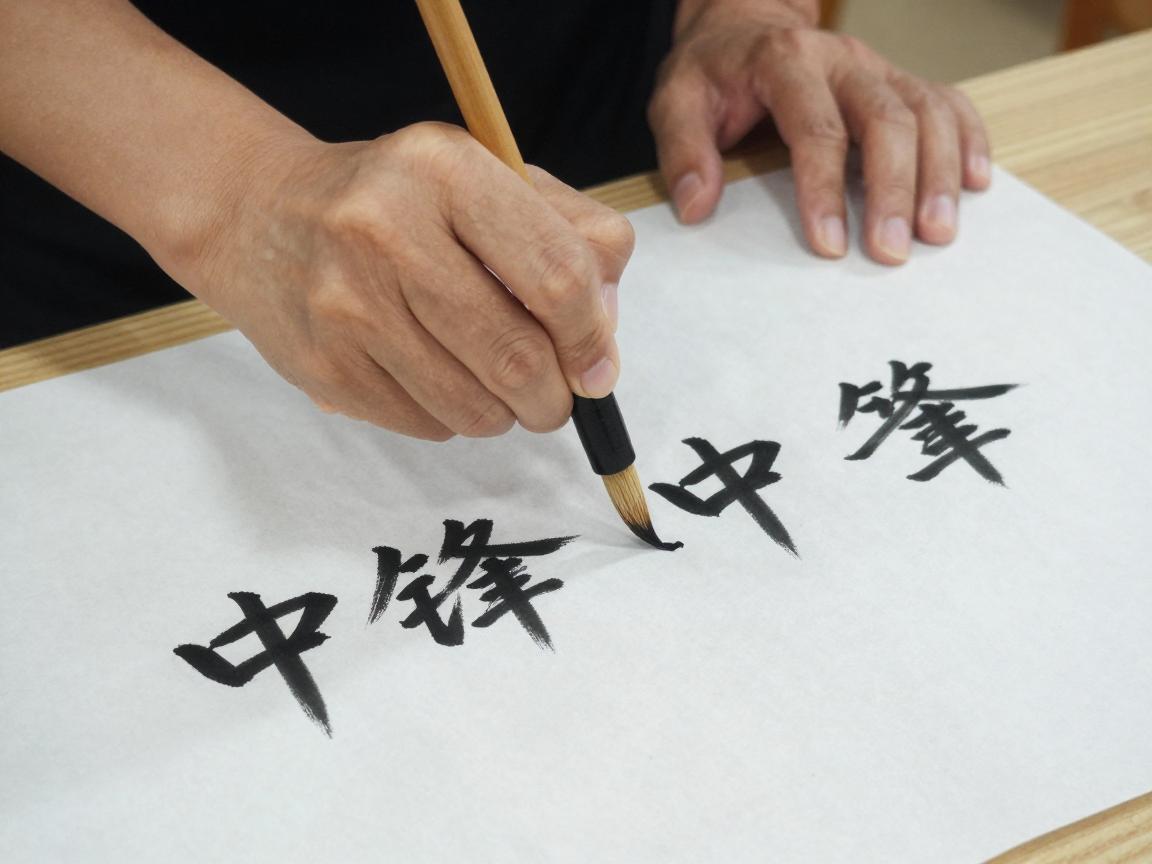 中锋中锋